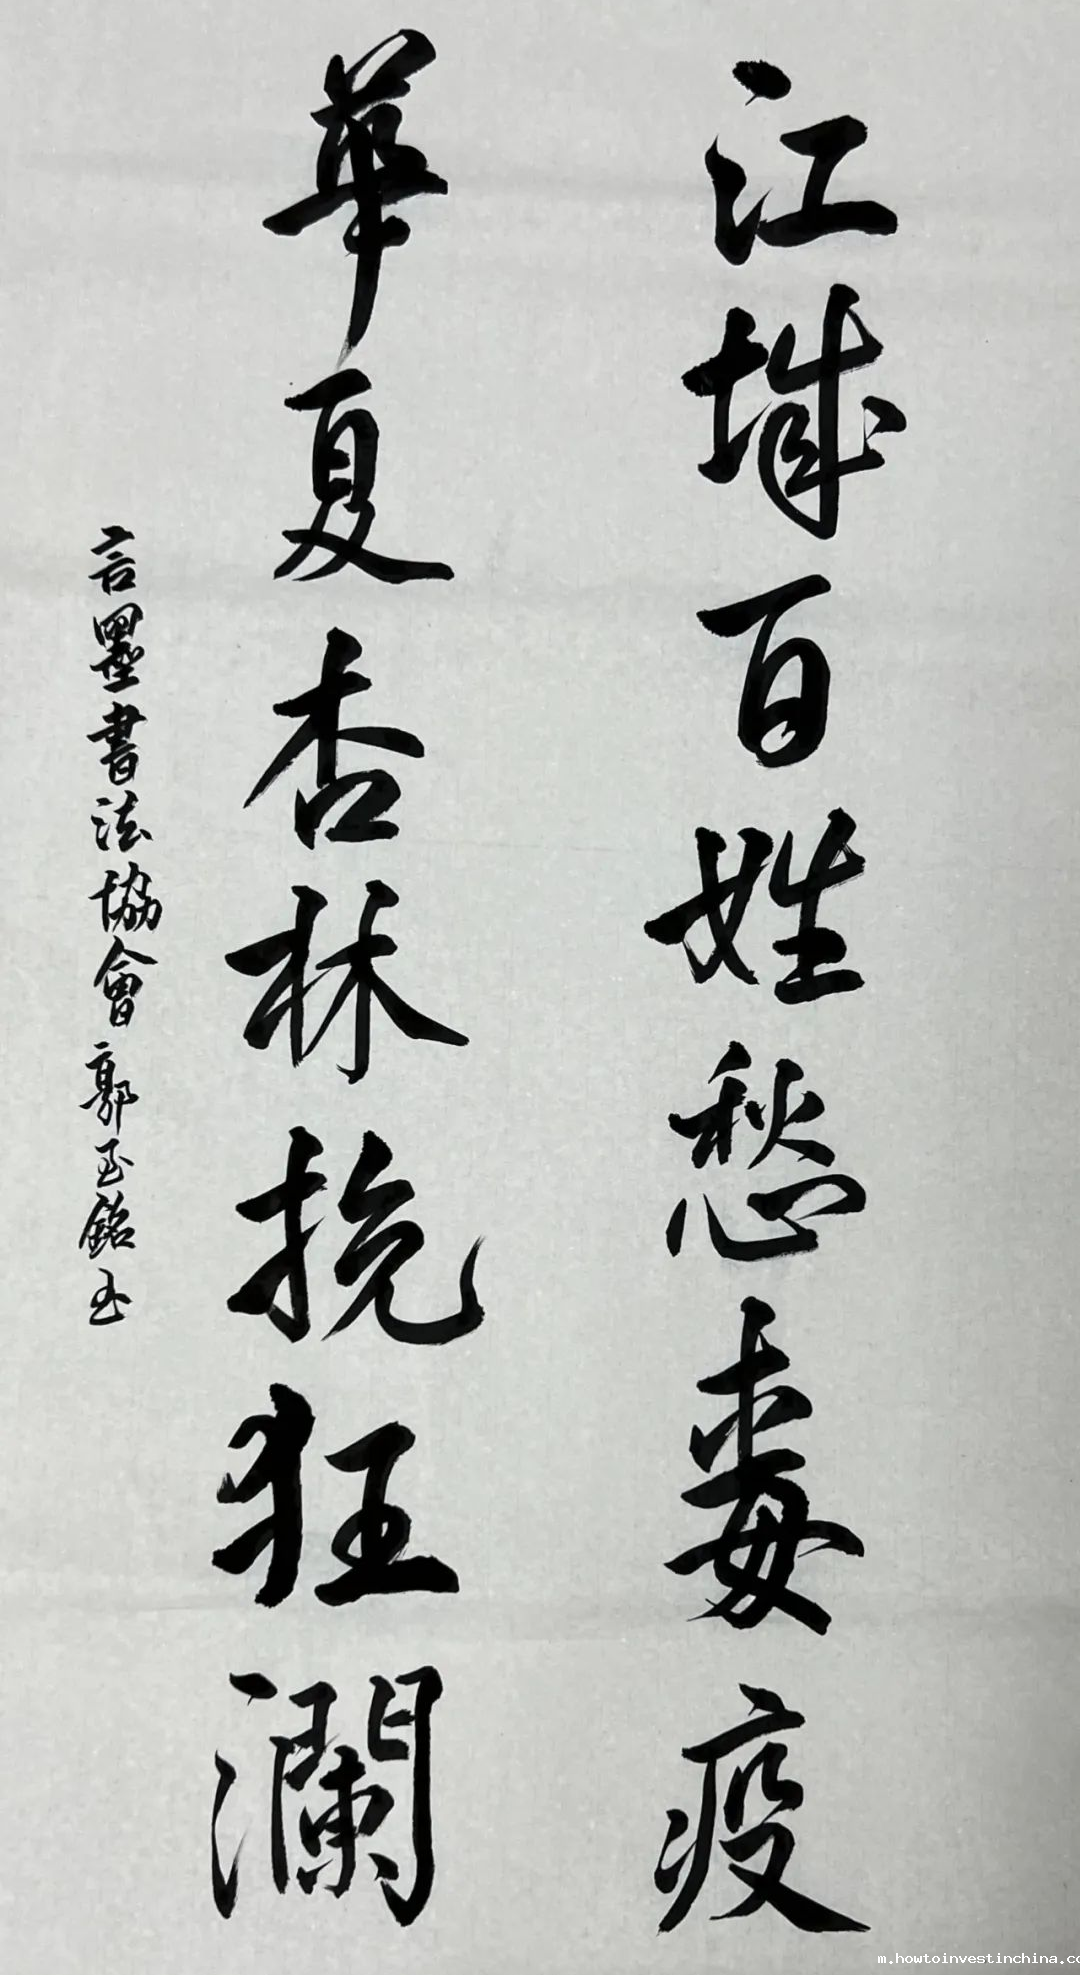 江城百姓愁毒疫
華夏杏林挽狂瀾
言墨書法協會郭玉銘书
m.howtoinvestinchina.co